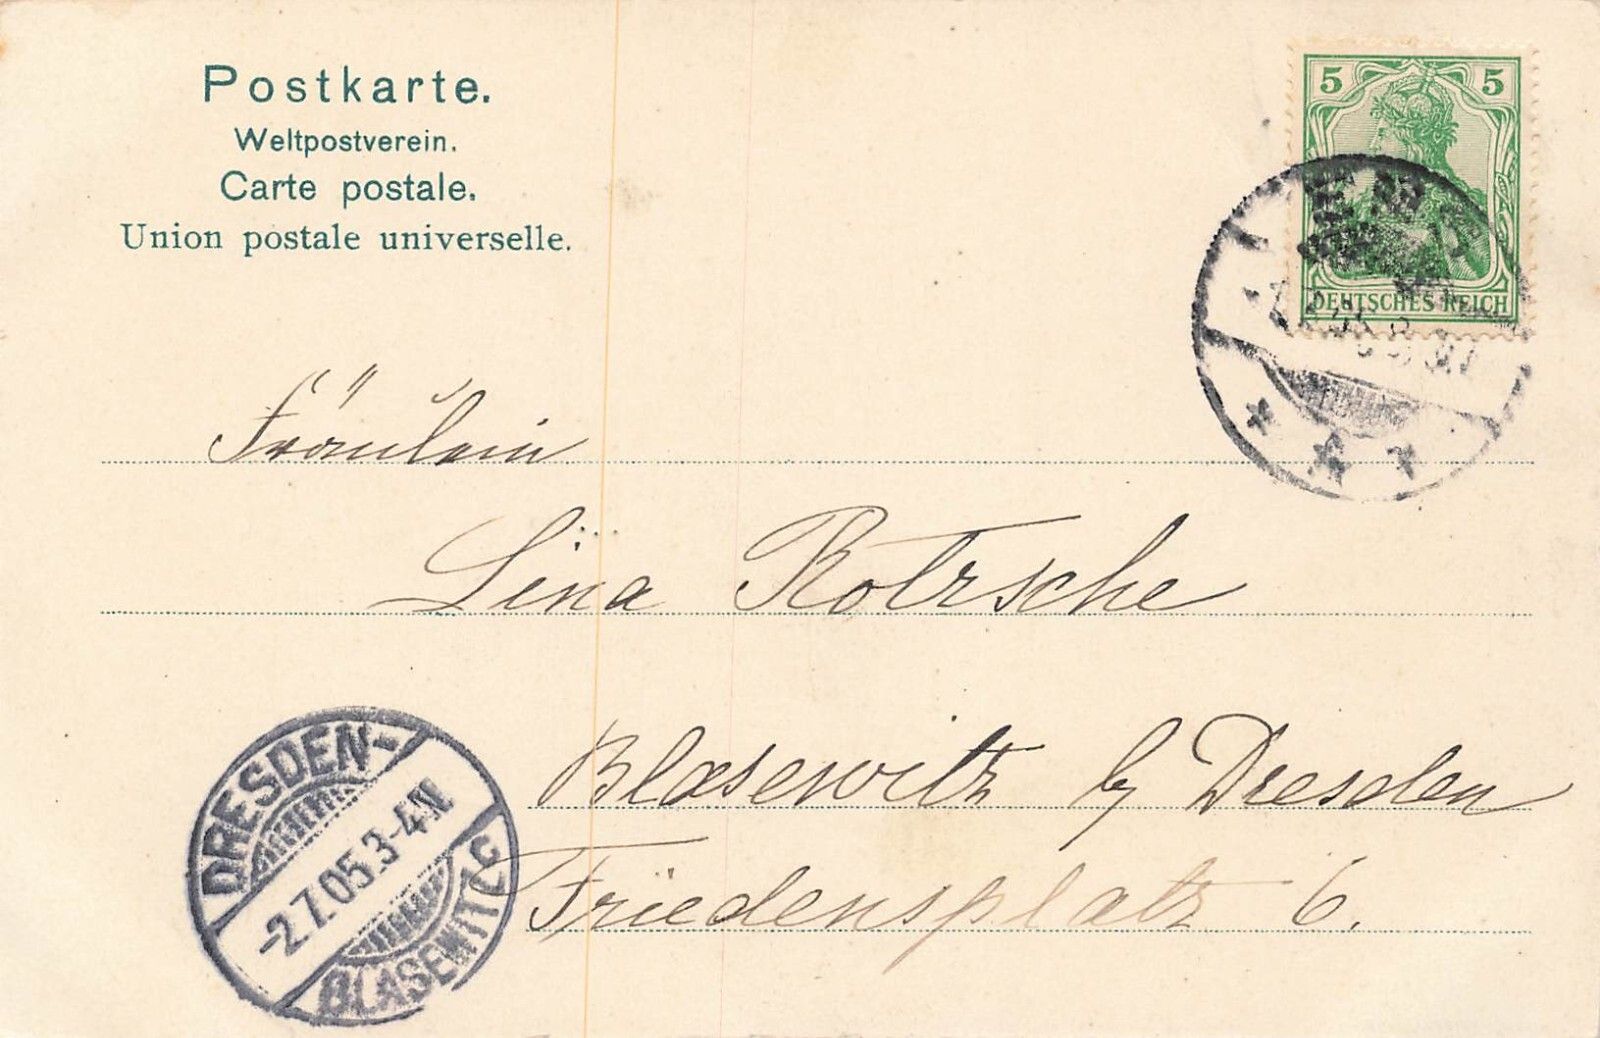 Postkarte.
Weltpostverein.
Carte postale.
Union postale universelle.
5 5
DEUTSCHES REICH
Fräulein
Lina Rotzsche
Blasewitz b/ Dresden
Friedensplatz 6.
DRESDEN-
-2.7.05.3-4N.
BLASEWITZ c